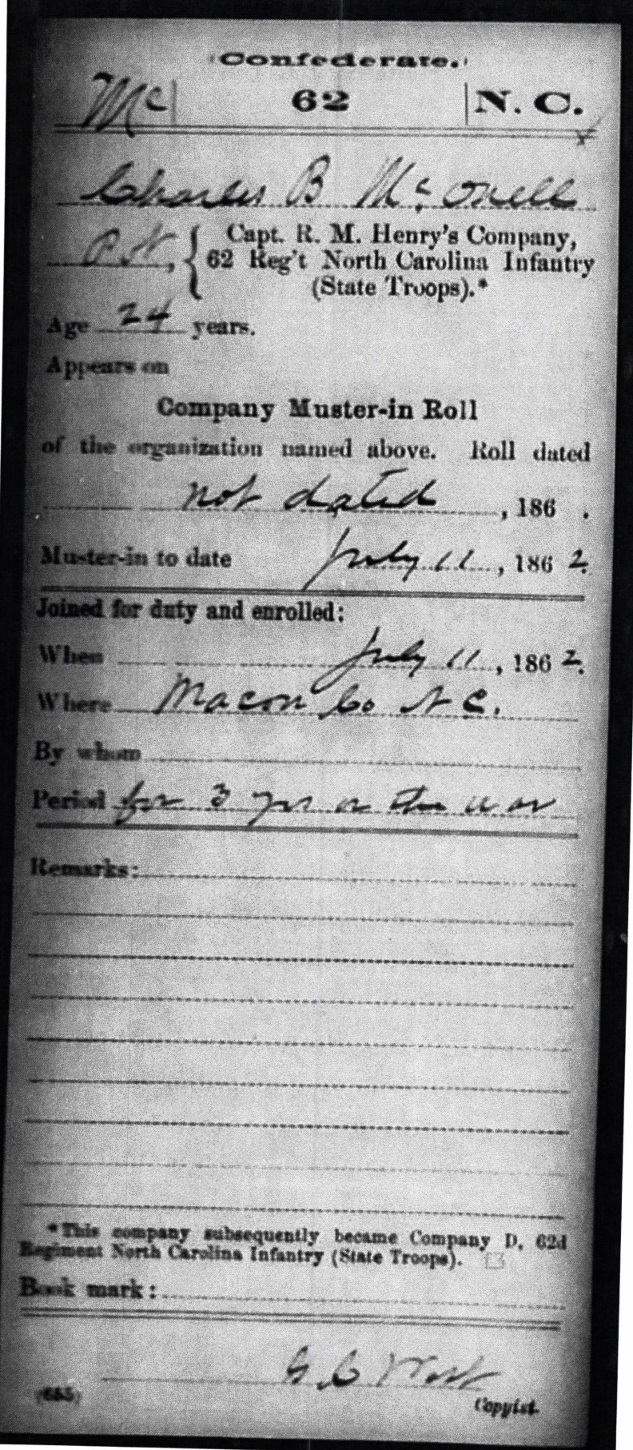 Confederate.
Mc | 62 | N. C.
Charles B Mc Onell
Pvt, { Capt. R. M. Henry's Company,
62 Reg't North Carolina Infantry
(State Troops).*
Age 24 years.
Appears on
Company Muster-in Roll
of the organization named above. Roll dated
not dated, 186 .
Muster-in to date July 11, 1862.
Joined for duty and enrolled:
When July 11, 1862.
Where Macon Co N C.
By whom
Period for 3 yrs or the war
Remarks:
*This company subsequently became Company D, 62d
Regiment North Carolina Infantry (State Troops).
Book mark:
G C West
(655) Copyist.